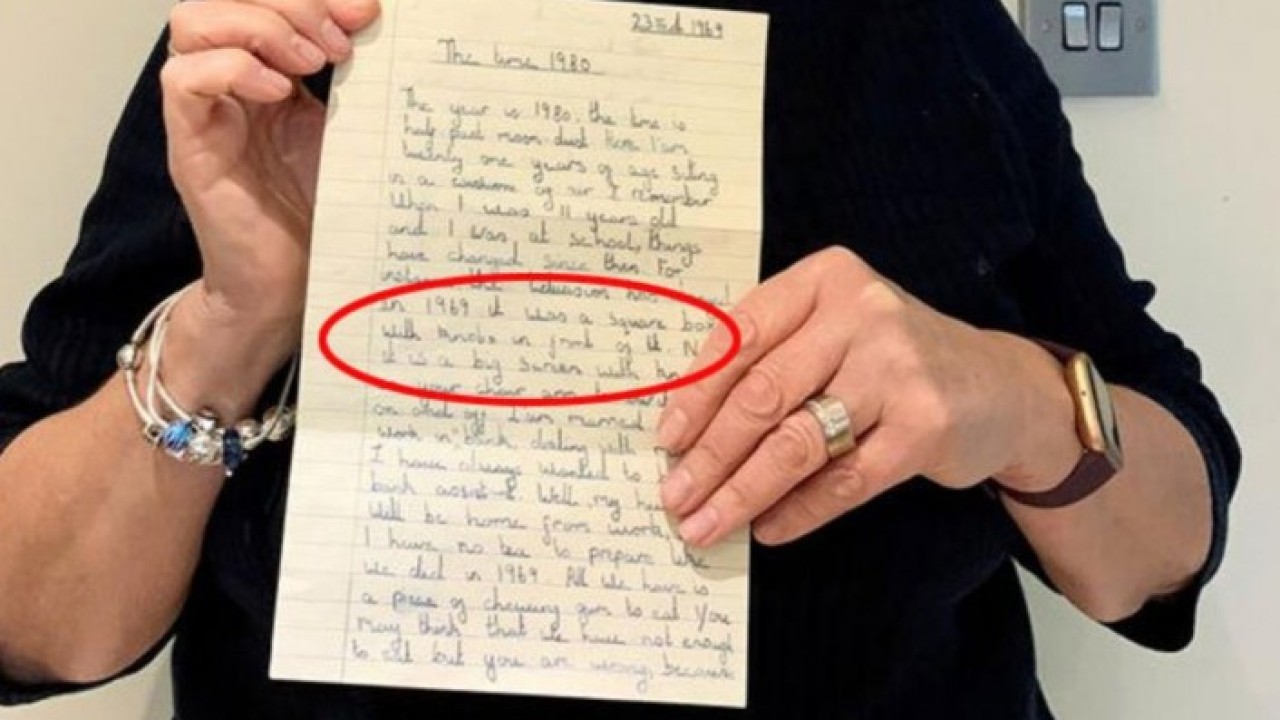 23rd Feb 1969
The time 1980
The year is 1980, the time is
half past moon dust here I am
twenty one years of age siting
in a cushione of air I remember
When I was 11 years old
and I was at school, things
have changed since then For
the television has
in 1969 it was a square box
with knobs in front of it. N
it is a big screen with
your chair arm
on and off I am married
work in bank, dealing with
I have always wanted to
bank assist Well, my hu
Will be home from work,
I have no tea to prepare like
we did in 1969 All we have is
a piece of chewing gum to eat You
may think that we have not enough
to eat but you are wrong, because